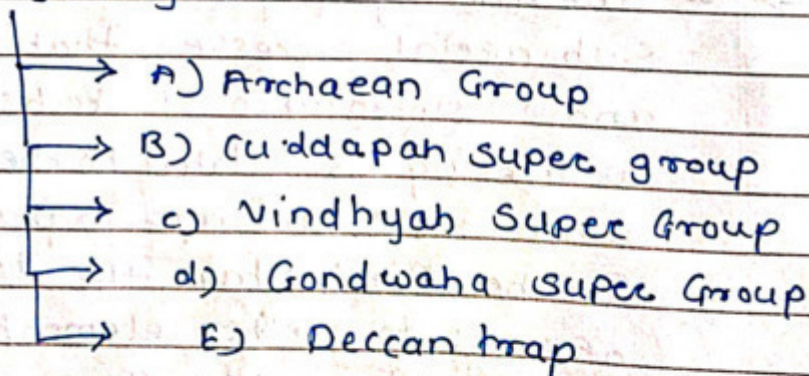 A) Archaean Group
B) Cuddapah super group
c) Vindhyah Super Group
d) Gondwaha super Group
E) Deccan trap